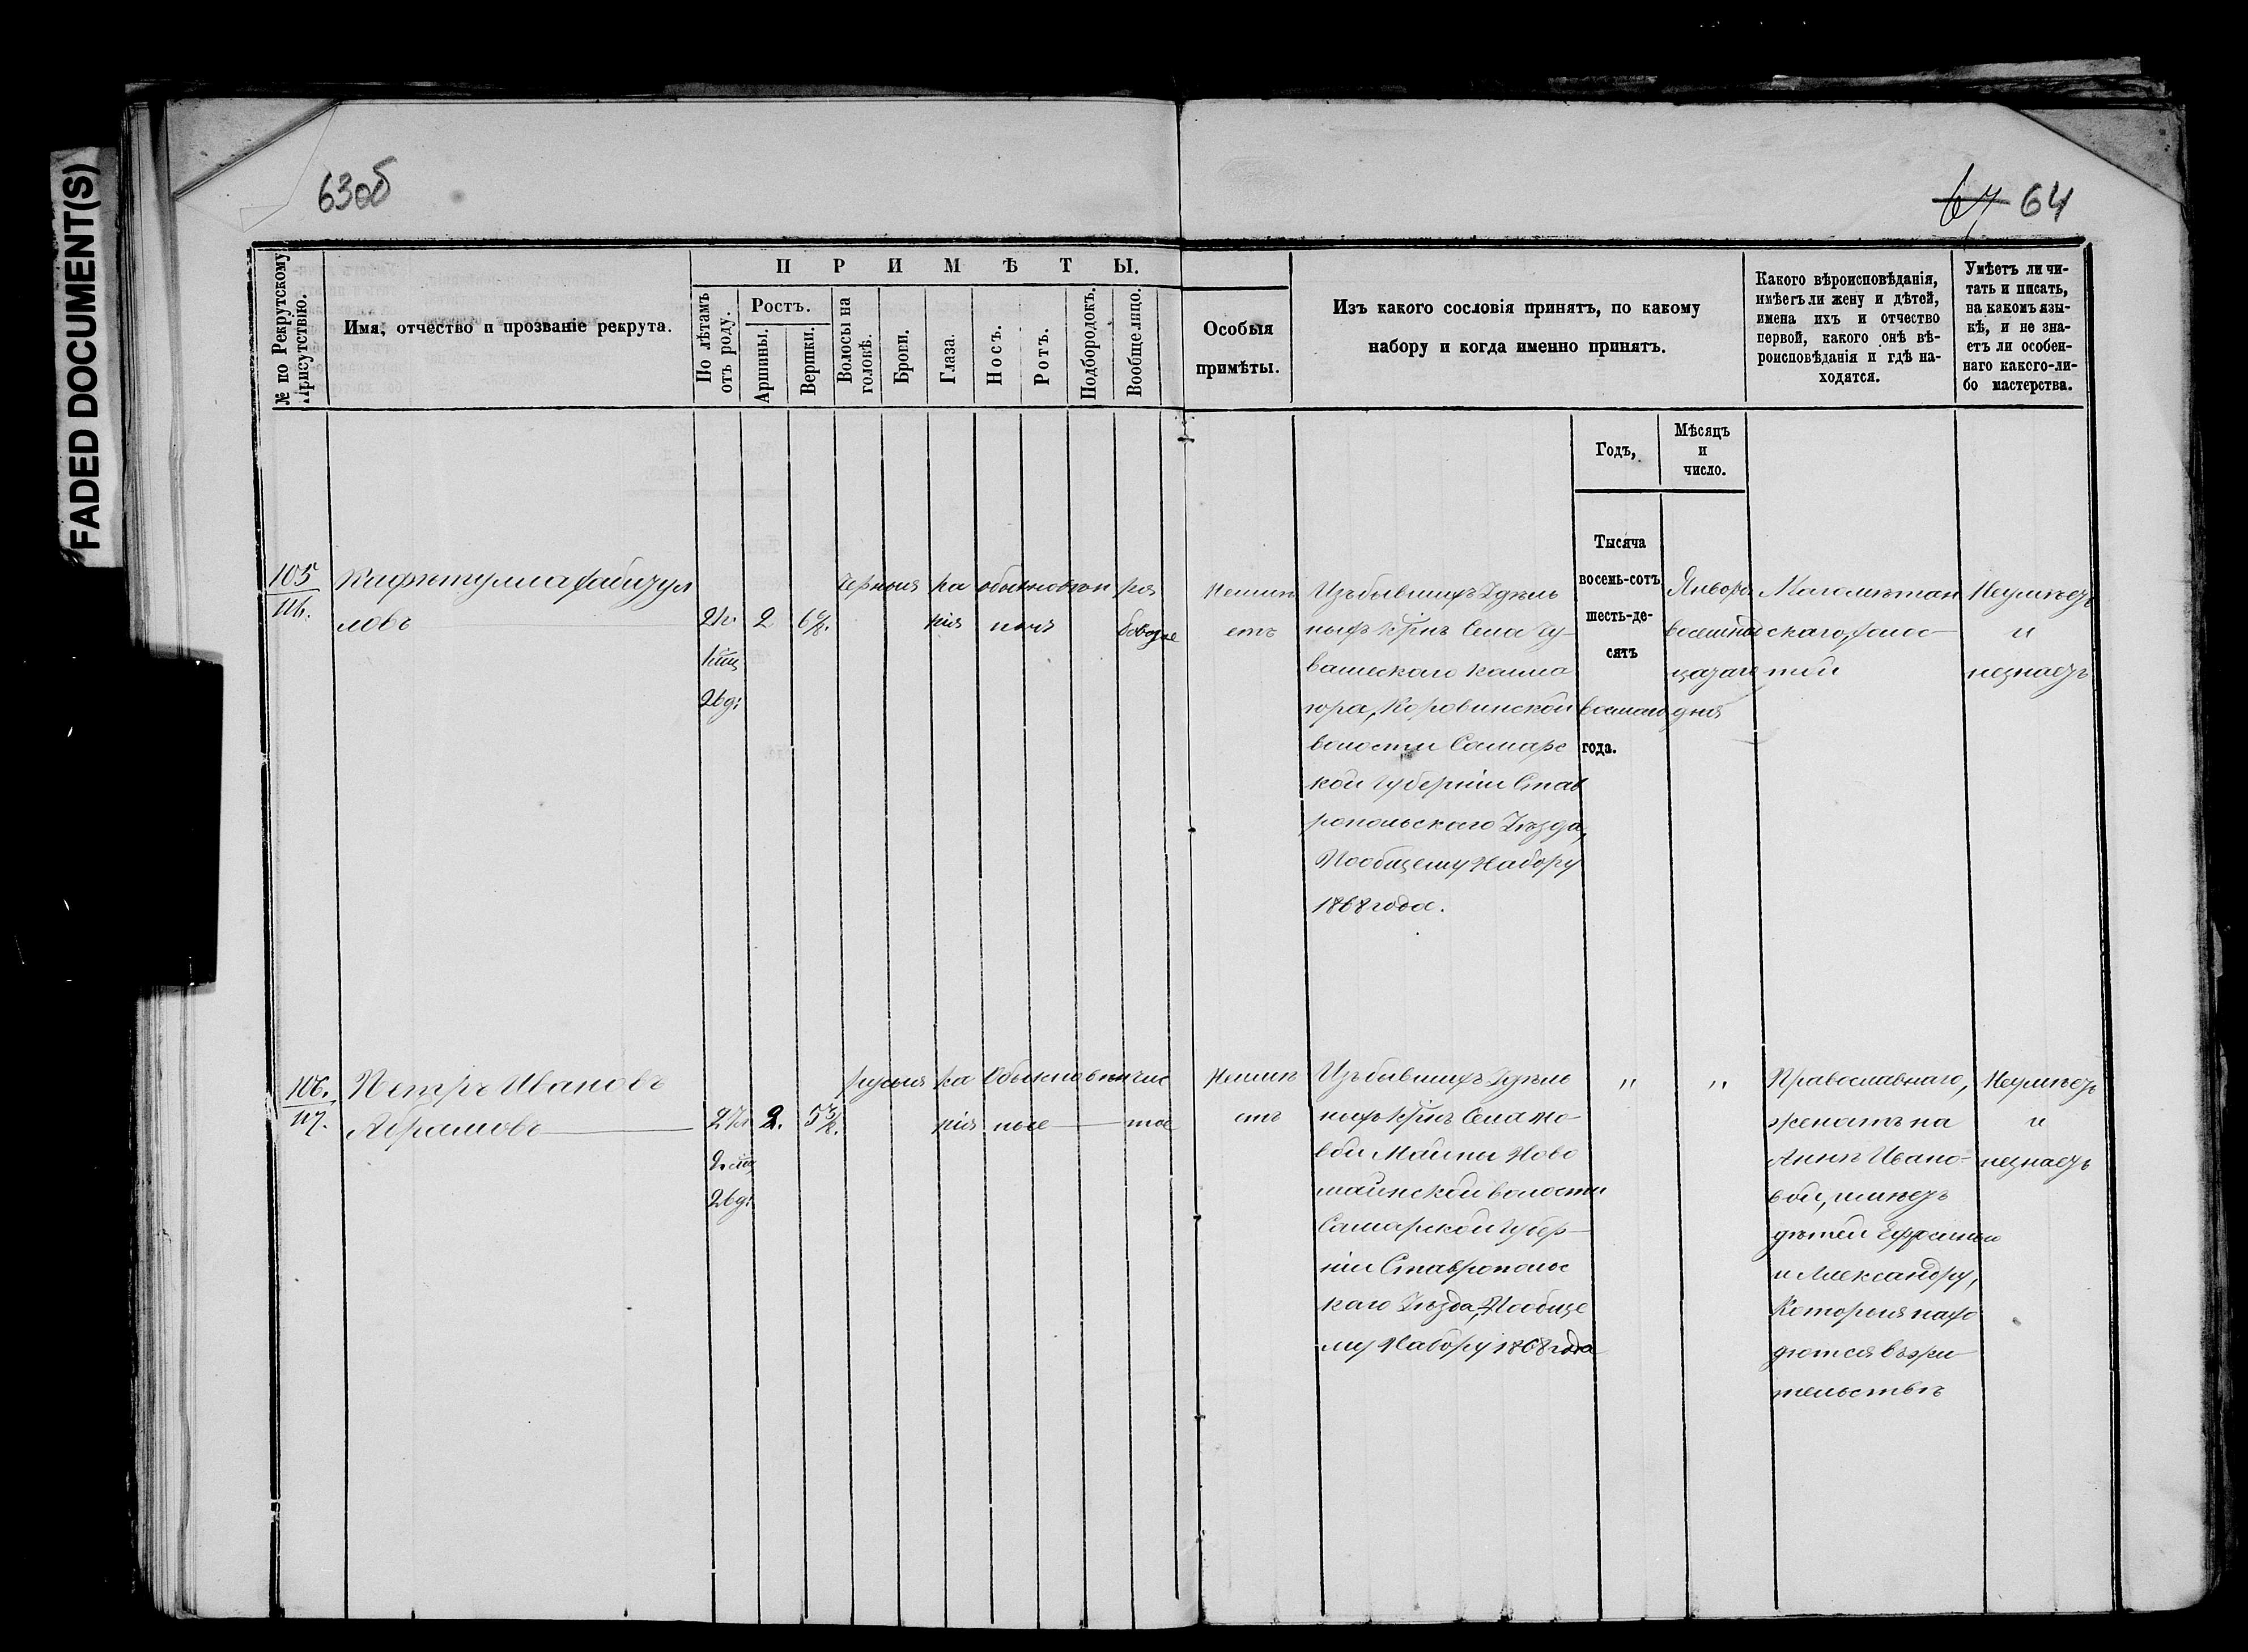 FADED DOCUMENT(S)
63об
67 64
№ по Рекрутскому Присутствію.
Имя, отчество и прозваніе рекрута.
ПРИМѢТЫ.
По лѣтамъ отъ роду.
Ростъ.
Аршины.
Вершки.
Волосы на головѣ.
Брови.
Глаза.
Носъ.
Ротъ.
Подбородокъ.
Вообще лицо.
Особыя
примѣты.
Изъ какого сословія принятъ, по какому
набору и когда именно принятъ.
Какого вѣроисповѣданія,
имѣетъ ли жену и дѣтей,
имена ихъ и отчество
первой, какого онѣ вѣ-
роисповѣданія и гдѣ на-
ходятся.
Умѣетъ ли чи-
тать и писать,
на какомъ язы-
кѣ, и не зна-
етъ ли особен-
наго какого-ли-
бо мастерства.
Годъ,
Мѣсяцъ
и
число.
105
116.
ловъ
2
6
26 д.
Черныя
ка
ріи
обыкновен
ныя
Неимѣ
етъ
Изъ бывшихъ Удѣль
ныхъ Крнъ Села Чу-
вашскаго Калма
юра, Коровинской
волости Самарс
кой Губерніи Став
ропольскаго Уѣзда,
По общему Набору
1868 года.
Тысяча
восемь-сотъ
шесть-де-
сятъ
восьмаго
года.
Января
восемнад
цатаго
дня
Магометан
скаго, холос
той
Неумѣетъ
и
незнаетъ
106.
117.
Петръ Ивановъ
Абрамовъ
2.
5
26 д.
русыя
ка
ріи
Обыкновен
ные
чис
тое
Неимѣ
етъ
Изъ бывшихъ Удѣль
ныхъ Крнъ Села Но-
вой Майны Ново
маинской волости
Самарской Губер-
ніи Ставрополь
каго Уѣзда, По обще
му Набору 1868 года
"
"
Православнаго,
женатъ на
Аннѣ Ивано-
вой, имѣетъ
дѣтей Ефросинью
и Александру,
Которыя нахо
дются въ жи
тельствѣ
Неумѣетъ
и
незнаетъ